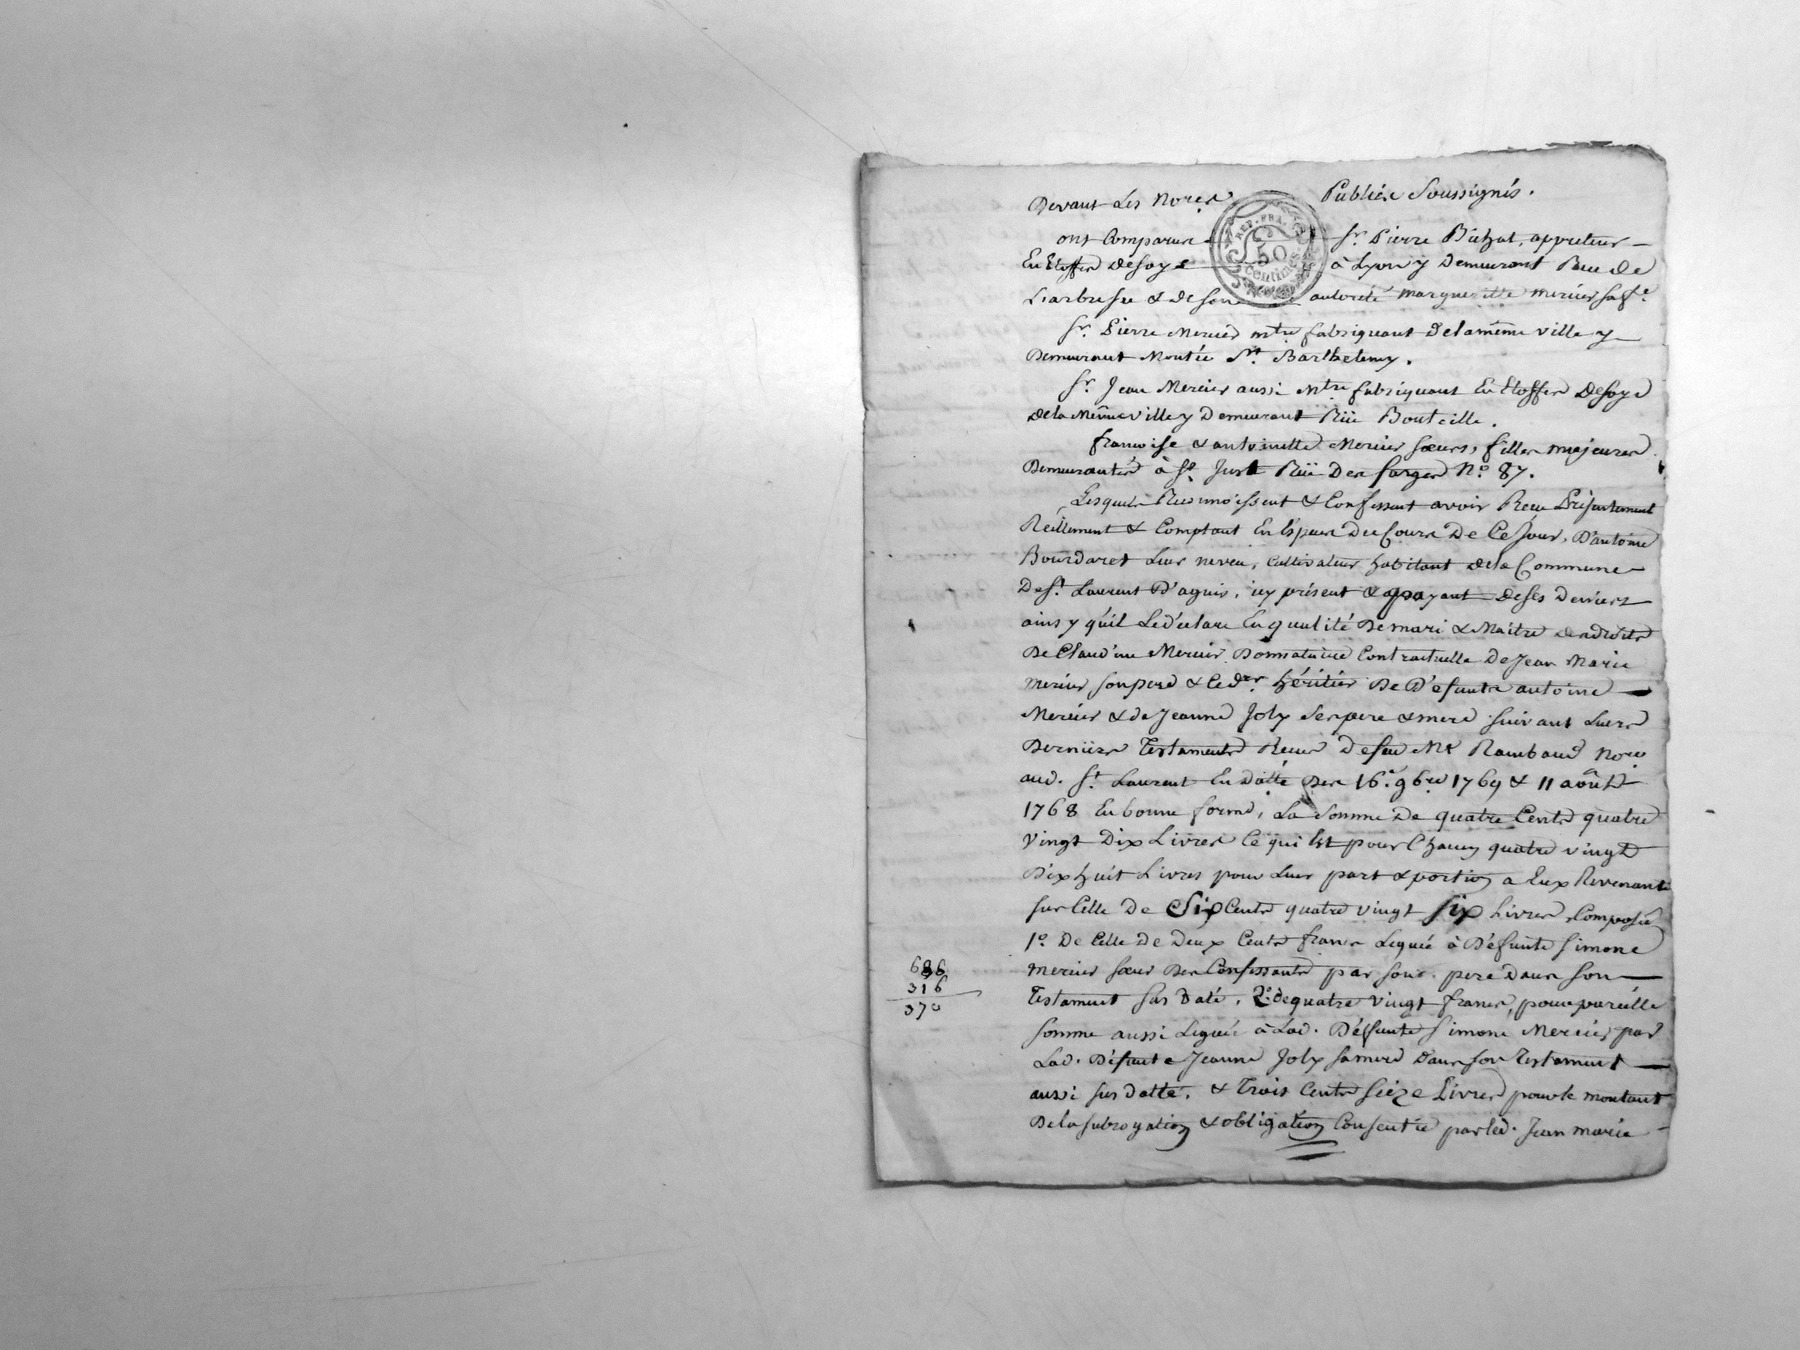 Devant Les Nores Publics Soussignés.
REP. FRA.
50
Centimes
ont Comparu Sr. Pierre Bichat, appreteur
En Etoffes de Soye à Lyon y Demeurant Rue de
Larbresle & de son autorité marguerite mercier sa fe.
Sr. Pierre Mercier mtre fabriquant de la même ville y
Demeurant Montée St. Barthelemy.
Sr. Jean Mercier aussi Mtre fabriquant En Etoffes de Soye
de la Même ville y Demeurant Rüe Bouteille.
francoise & antoinette Mercier sœurs, filles majeures
Demeurantes à St. Just Rüe Des farges N.o 87.
Lesquels Reconnoissent & Confessent avoir Recu Présentement
Réellement & Comptant En Espèces Du Cours De Ce Jour, D'antoine
Bourdaret Leur neveu, cultivateur habitant de la Commune
De St. Laurent D'agnis, icy présent & payant de ses deniers
ainsy qu'il Le déclare En qualité De mari & Maitre des droits
De Claud'ine Mercier Donnataire Contractuelle De Jean Marie
Mercier son pere & Ce der. héritier De Défunts antoine
Mercier & de Jeanne Joly Ses pere & mere suivant Leurs
Derniers Testaments Recus de feu Me Rambaud Nore
aud. St. Laurent En Datte Des 16e. 9bre 1769 & 11 août
1768 En bonne forme, La Somme De quatre Cents quatre
Vingt Dix Livres Ce qui Est pour Chacun quatre vingt
Dix huit Livres pour Leur part & portion a Eux Revenant
sur Celle De Six Cents quatre vingt Six Livres Composée
1.o De Celle De Deux Cents francs Leguée à Défunte Simone
686
316
370
mercier sœur Des Confessants par son pere Dans Son
Testament sus Daté, 2.o de quatre vingt francs, pour pareille
somme aussi Leguée à Lad. Défunte Simone Mercier par
Lad. Défunte Jeanne Joly sa mere Dans son Testament
aussi sus datté, & Trois Cents Seize Livres pour le montant
De la subrogation & obligation Consentie par led. Jean marie